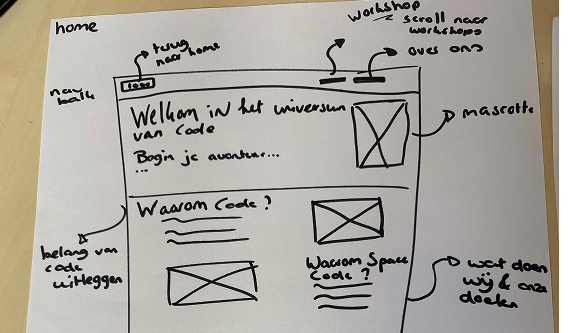 home
workshop
scroll naar
workshops
terug
naar home
over ons
logo
nav
balk
Welkom in het universum
van code
Begin je avontuur...
...
mascotte
Waarom Code?
belang van
code
uitleggen
Waarom Space
Code?
wat doen
wij & onze
doelen